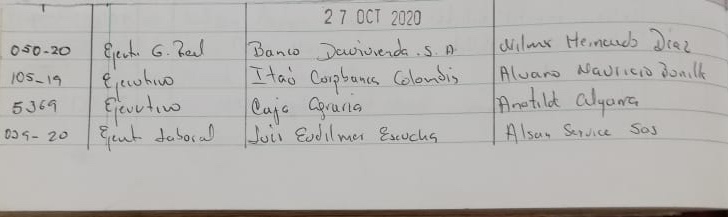 27 OCT 2020
050-20 Ejecut. G. Real Banco Davivienda. S.A Wilmer Hernando Diaz
105-19 Ejecutivo Itaú Corpbanca Colombia Alvaro Mauricio Bonilla
5369 Ejecutivo Caja Agraria Anatilde
039-20 Ejecut Laboral Luis Eudilmer Escucha Alsan Service Sas